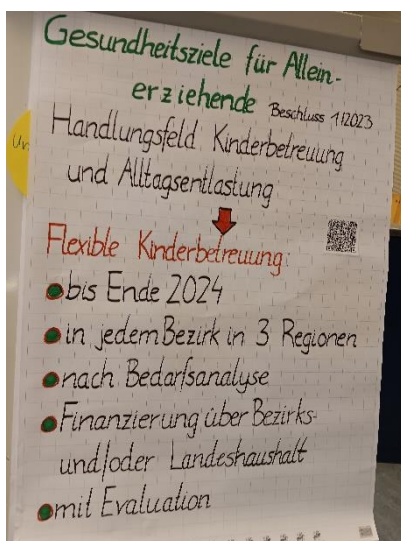 Gesundheitsziele für Allein-
erziehende Beschluss 1/2023
Handlungsfeld Kinderbetreuung
und Alltagsentlastung
Flexible Kinderbetreuung:
bis Ende 2024
in jedem Bezirk in 3 Regionen
nach Bedarfsanalyse
Finanzierung über Bezirks-
und/oder Landeshaushalt
mit Evaluation